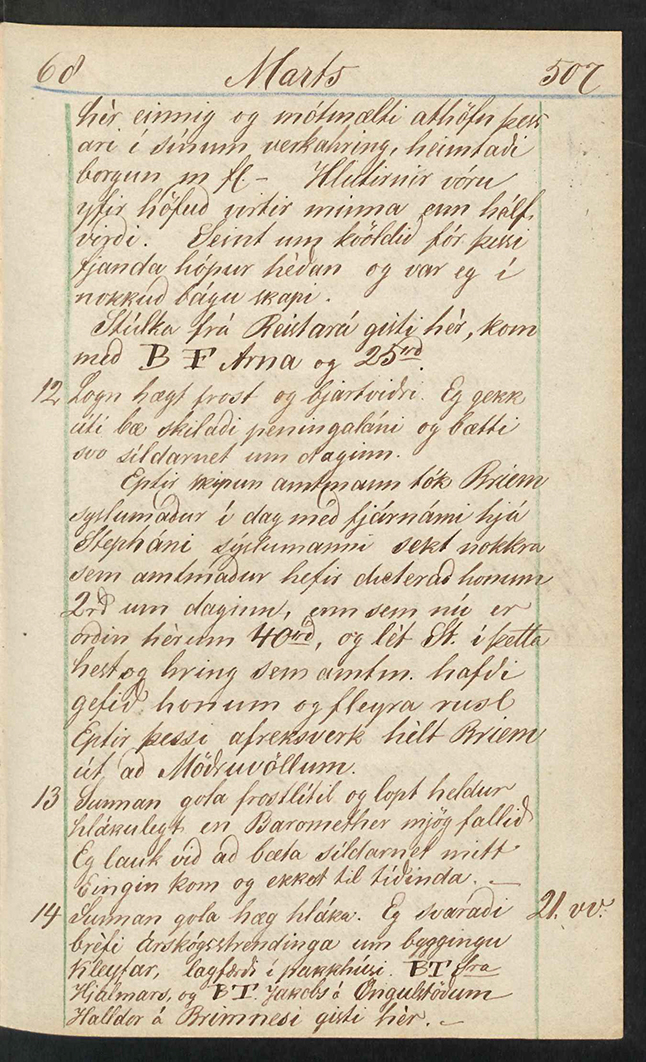 68 Marts 507
hér einnig og mótmælti athöfn þess
ari í sínum verkahring, heimtaði
borgun m fl - Hlutirnir vóru
yfir höfuð virtir minna enn hálf
virdi. Seint um kvöldid fór þessi
fjanda hópur héðan og var eg í
nokkud bágu skapi.
Stúlka frá Reistará gisti hér, kom
med B F Arna og 25rd.
12 Logn hægt frost og bjartviðri. Eg gekk
úti bæ skilaði peningaláni og bætti
svo síldarnet um daginn.
Eptir skipun amtmann tók Briem
syslumaður í dag með fjárnámi hjá
Stepháni sýslumanni sekt nokkra
sem amtmaður hefir dicterað honum
2rd um daginn, enn sem nú er
orðin hérum 40rd, og lét St. í þetta
hest og hring sem amtm. hafði
gefið honum og fleyra rusl
Eptir þessi afreksverk hélt Briem
út ad Möðruvöllum.
13 Sunnan gola frostlítil og lopt heldur
hlákulegt en Baromether mjög fallið
Eg lauk við ad bæta síldarnet mitt
Eingin kom og ekkert til tíðinda.
14 Sunnan gola hæg hláka. Eg svaraði 21. vv.
bréfi Árskógsstrendinga um byggingu
Kleyfar, lagfærði í pakkhúsi. BT fra
Hjálmars, og BT. Jakobs á Öngulstöðum
Halldór á Brimnesi gisti hér.